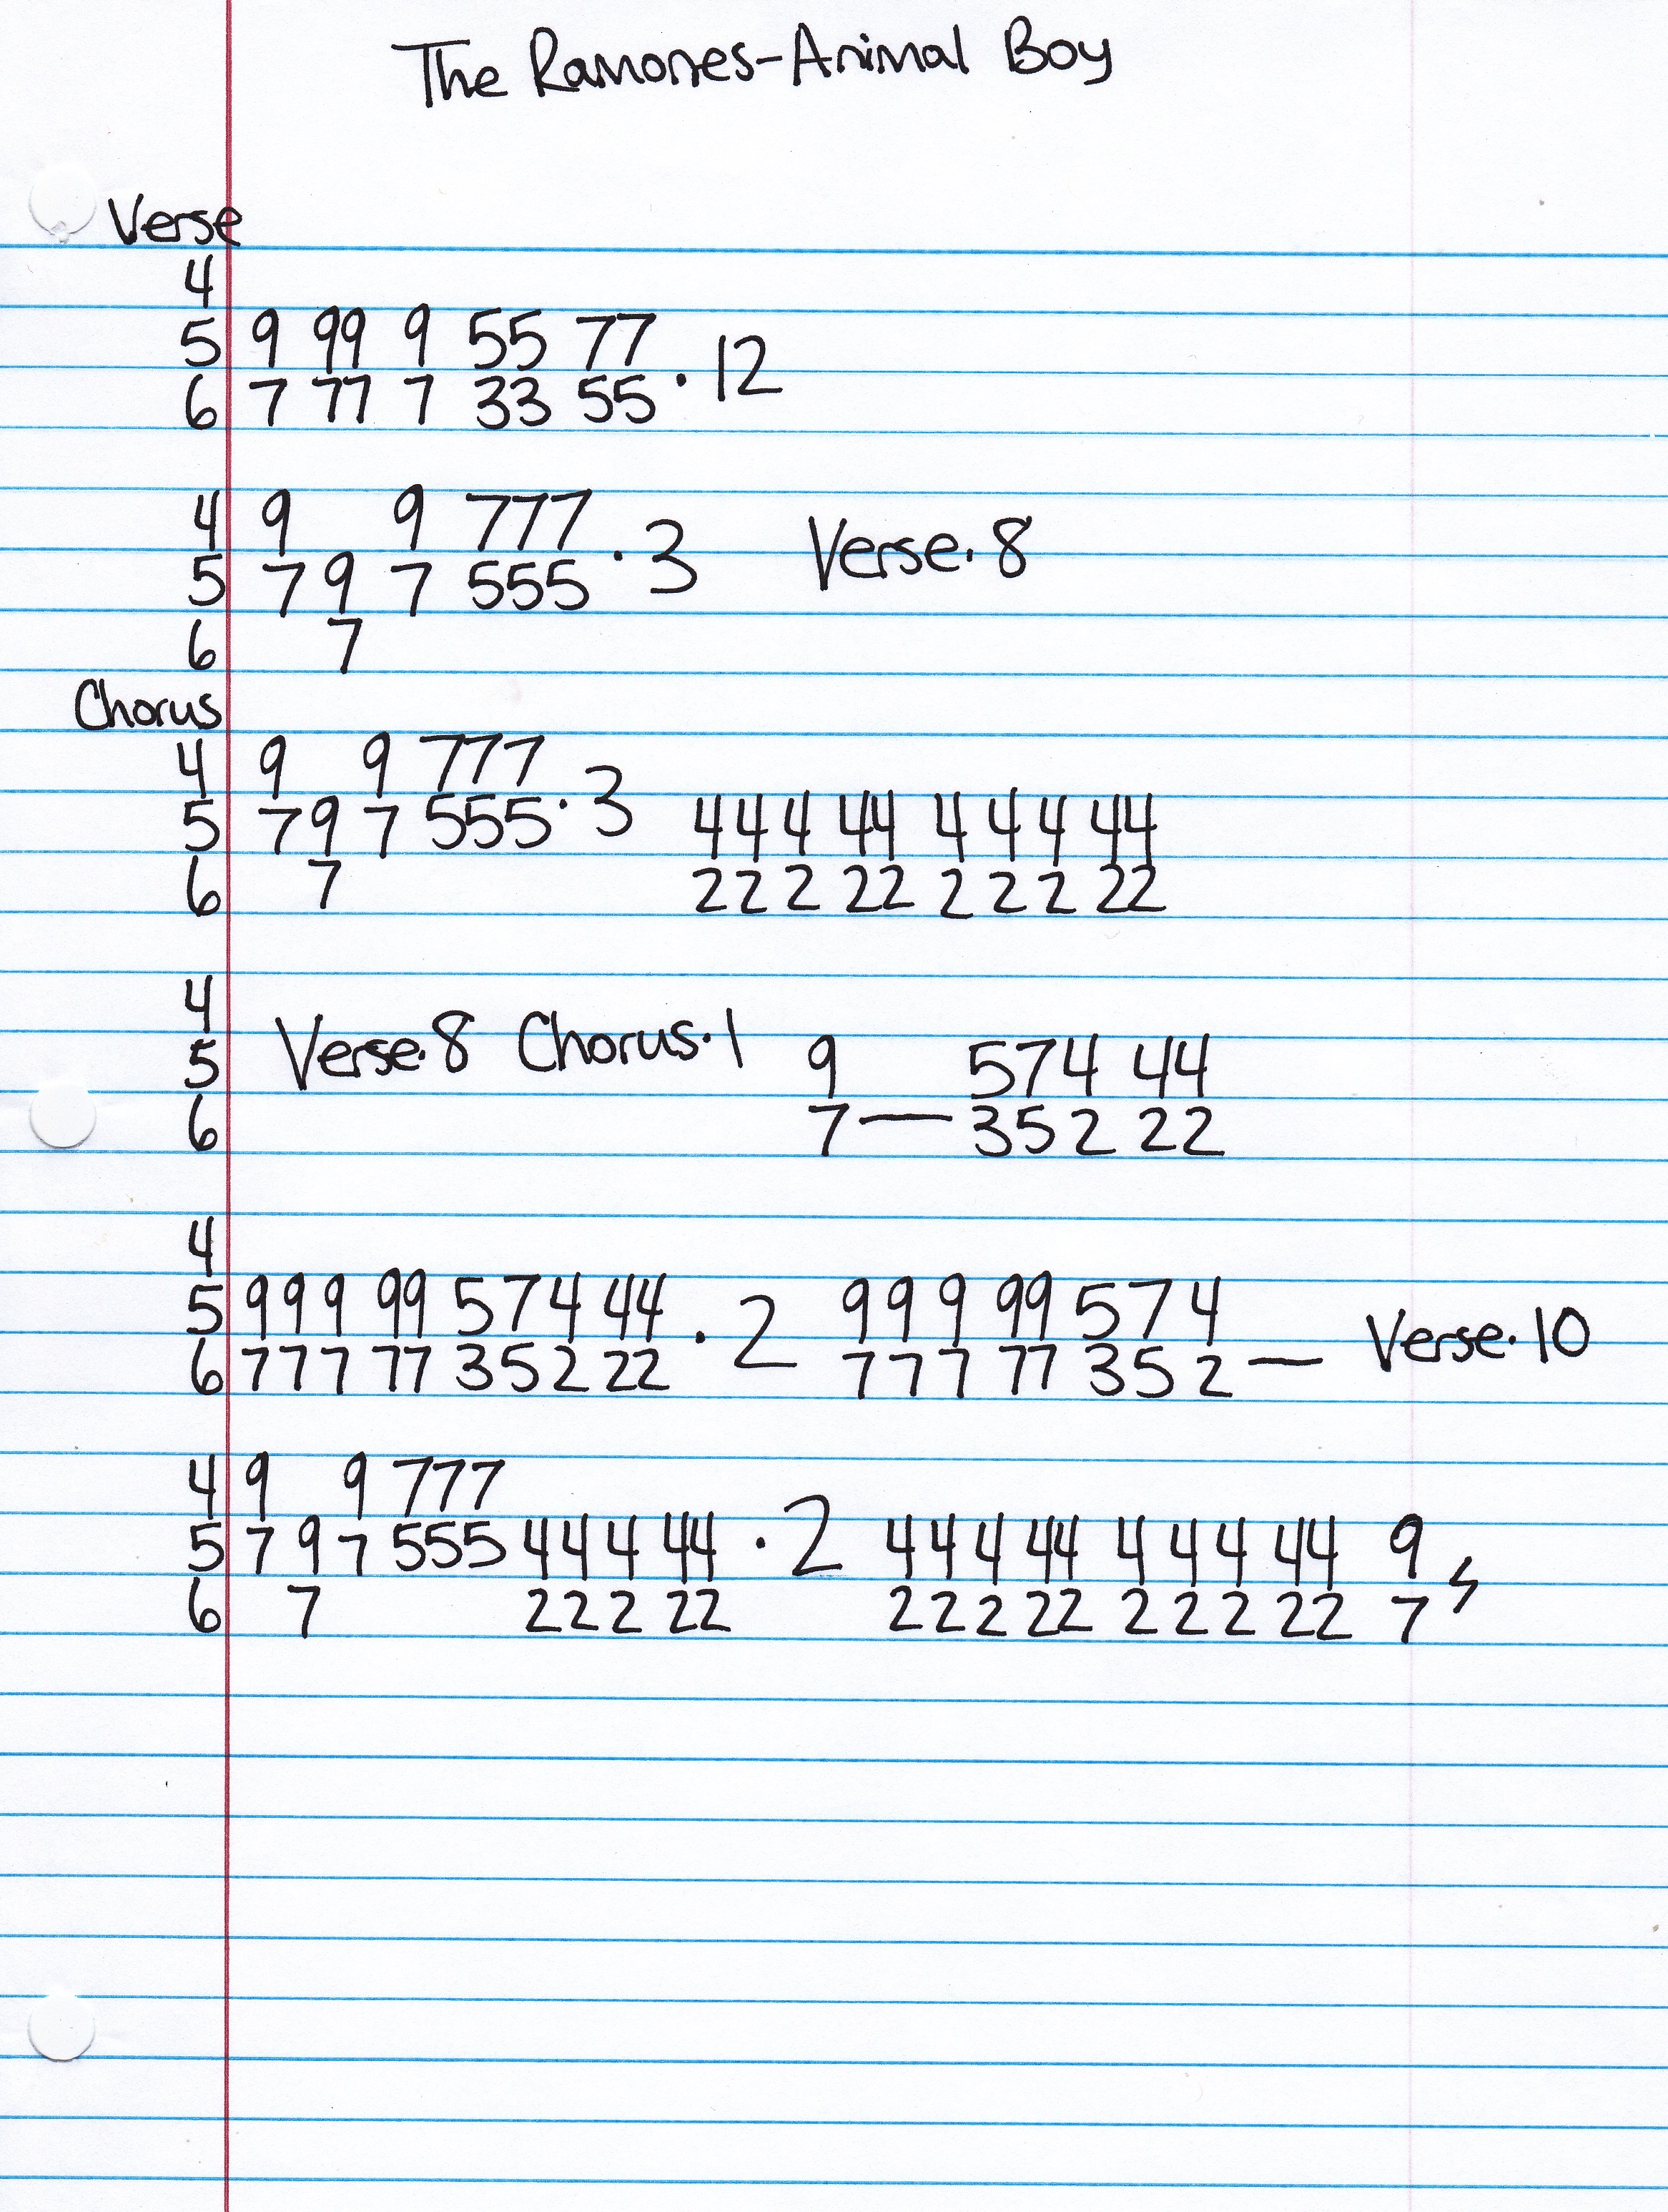 The Ramones-Animal Boy
Verse
4
5 9 99 9 55 77
6 7 77 7 33 55 · 12
4 9 9 777
5 7 9 7 555 · 3 Verse · 8
6 7
Chorus
4 9 9 777
5 7 9 7 555 · 3 44 4 44 4 4 4 44
6 7 22 2 22 2 2 2 22
4
5 Verse · 8 Chorus · 1 9 574 44
6 7 — 352 22
4
5 999 99 574 44 · 2 999 99 574
6 777 77 352 22 777 77 352 — Verse · 10
4 9 9 777
5 7 9 7 555 444 44 · 2 444 44 4 4 4 44 9
6 7 222 22 222 22 2 2 2 22 7